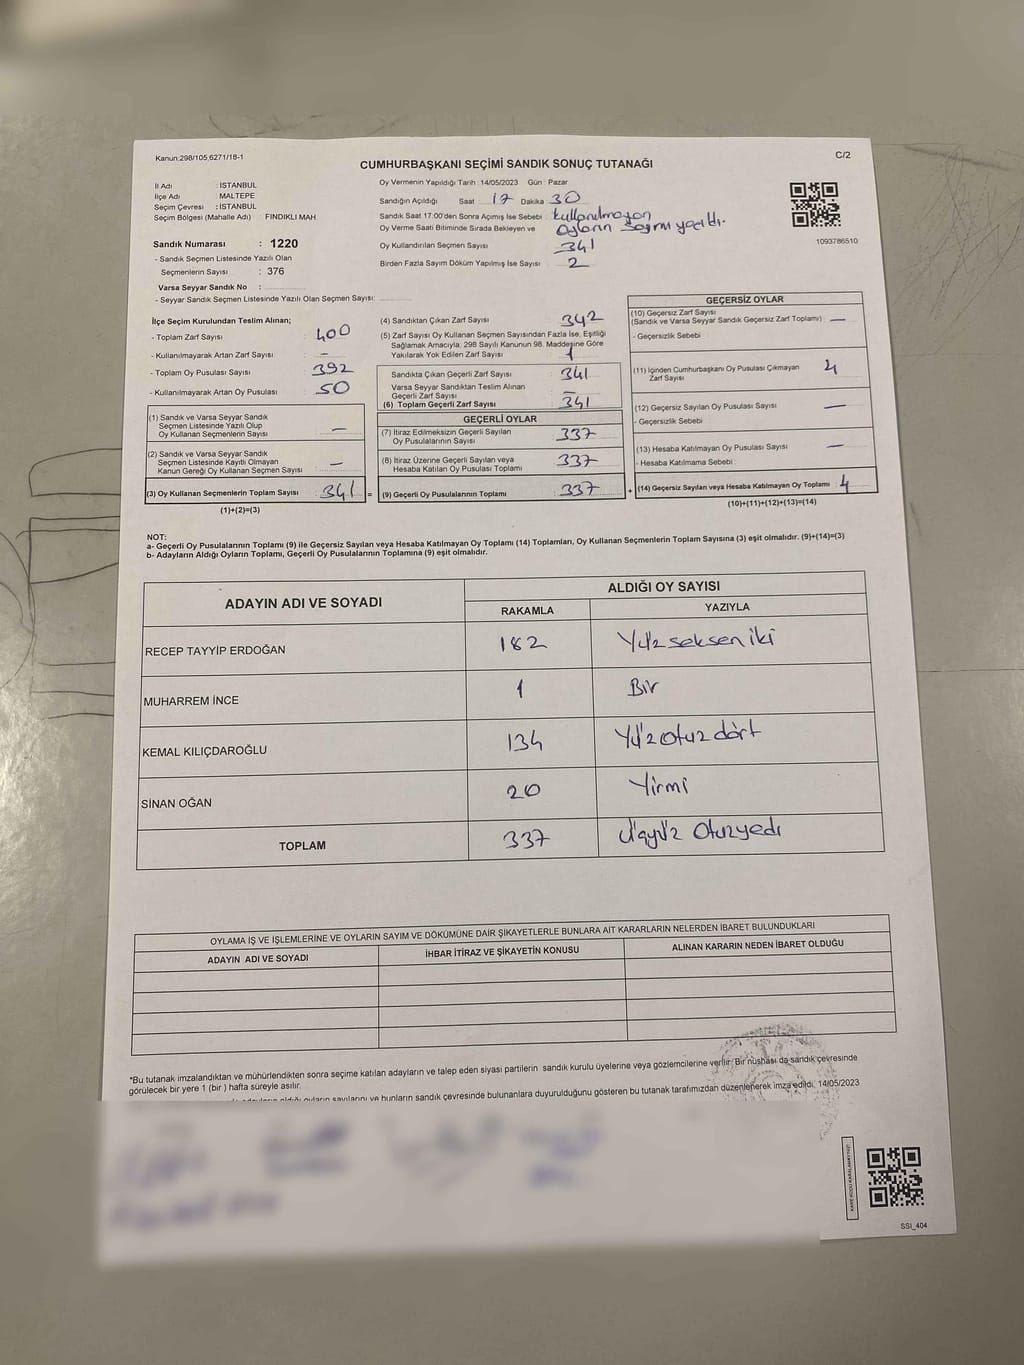 Kanun:298/105,6271/18-1
C/2
CUMHURBAŞKANI SEÇİMİ SANDIK SONUÇ TUTANAĞI
İl Adı : İSTANBUL
İlçe Adı : MALTEPE
Seçim Çevresi : İSTANBUL
Seçim Bölgesi (Mahalle Adı) : FINDIKLI MAH.
Sandık Numarası : 1220
- Sandık Seçmen Listesinde Yazılı Olan
Seçmenlerin Sayısı : 376
Varsa Seyyar Sandık No :
- Seyyar Sandık Seçmen Listesinde Yazılı Olan Seçmen Sayısı:
Oy Vermenin Yapıldığı Tarih : 14/05/2023 Gün : Pazar
Sandığın Açıldığı Saat 17 Dakika 30
Sandık Saat 17:00'den Sonra Açımış İse Sebebi : kullanılmayan
Oy Verme Saati Bitiminde Sırada Bekleyen ve oyların sayımı yapıldı.
Oy Kullandırılan Seçmen Sayısı 341
Birden Fazla Sayım Döküm Yapılmış İse Sayısı : 2
1093786510
İlçe Seçim Kurulundan Teslim Alınan;
- Toplam Zarf Sayısı : 400
- Kullanılmayarak Artan Zarf Sayısı : –
- Toplam Oy Pusulası Sayısı : 392
- Kullanılmayarak Artan Oy Pusulası : 50
(1) Sandık ve Varsa Seyyar Sandık
Seçmen Listesinde Yazılı Olup
Oy Kullanan Seçmenlerin Sayısı : –
(2) Sandık ve Varsa Seyyar Sandık
Seçmen Listesinde Kayıtlı Olmayan
Kanun Gereği Oy Kullanan Seçmen Sayısı : –
(3) Oy Kullanan Seçmenlerin Toplam Sayısı : 341 =
(1)+(2)=(3)
(4) Sandıktan Çıkan Zarf Sayısı : 342
(5) Zarf Sayısı Oy Kullanan Seçmen Sayısından Fazla İse, Eşitliği
Sağlamak Amacıyla, 298 Sayılı Kanunun 98. Maddesine Göre
Yakılarak Yok Edilen Zarf Sayısı : 1
Sandıkta Çıkan Geçerli Zarf Sayısı : 341
Varsa Seyyar Sandıktan Teslim Alınan
Geçerli Zarf Sayısı : –
(6) Toplam Geçerli Zarf Sayısı : 341
GEÇERLİ OYLAR
(7) İtiraz Edilmeksizin Geçerli Sayılan
Oy Pusulalarının Sayısı : 337
(8) İtiraz Üzerine Geçerli Sayılan veya
Hesaba Katılan Oy Pusulası Toplamı : 337
(9) Geçerli Oy Pusulalarının Toplamı : 337 +
GEÇERSİZ OYLAR
(10) Geçersiz Zarf Sayısı
(Sandık ve Varsa Seyyar Sandık Geçersiz Zarf Toplamı) : –
- Geçersizlik Sebebi :
(11) İçinden Cumhurbaşkanı Oy Pusulası Çıkmayan
Zarf Sayısı : 4
(12) Geçersiz Sayılan Oy Pusulası Sayısı : –
- Geçersizlik Sebebi :
(13) Hesaba Katılmayan Oy Pusulası Sayısı : –
- Hesaba Katılmama Sebebi :
(14) Geçersiz Sayılan veya Hesaba Katılmayan Oy Toplamı : 4
(10)+(11)+(12)+(13)=(14)
NOT:
a- Geçerli Oy Pusulalarının Toplamı (9) ile Geçersiz Sayılan veya Hesaba Katılmayan Oy Toplamı (14) Toplamları, Oy Kullanan Seçmenlerin Toplam Sayısına (3) eşit olmalıdır. (9)+(14)=(3)
b- Adayların Aldığı Oyların Toplamı, Geçerli Oy Pusulalarının Toplamına (9) eşit olmalıdır.
ADAYIN ADI VE SOYADI
ALDIĞI OY SAYISI
RAKAMLA YAZIYLA
RECEP TAYYİP ERDOĞAN 182 Yüz seksen iki
MUHARREM İNCE 1 Bir
KEMAL KILIÇDAROĞLU 134 Yüz otuz dört
SİNAN OĞAN 20 Yirmi
TOPLAM 337 Üçyüz Otuzyedi
OYLAMA İŞ VE İŞLEMLERİNE VE OYLARIN SAYIM VE DÖKÜMÜNE DAİR ŞİKAYETLERLE BUNLARA AİT KARARLARIN NELERDEN İBARET BULUNDUKLARI
ADAYIN ADI VE SOYADI İHBAR İTİRAZ VE ŞİKAYETİN KONUSU ALINAN KARARIN NEDEN İBARET OLDUĞU
*Bu tutanak imzalandıktan ve mühürlendikten sonra seçime katılan adayların ve talep eden siyasi partilerin sandık kurulu üyelerine veya gözlemcilerine verilir. Bir nüshası da sandık çevresinde
görülecek bir yere 1 (bir ) hafta süreyle asılır.
oyların sayılarını ve bunların sandık çevresinde bulunanlara duyurulduğunu gösteren bu tutanak tarafımızdan düzenlenerek imza edildi. 14/05/2023
SSI_404